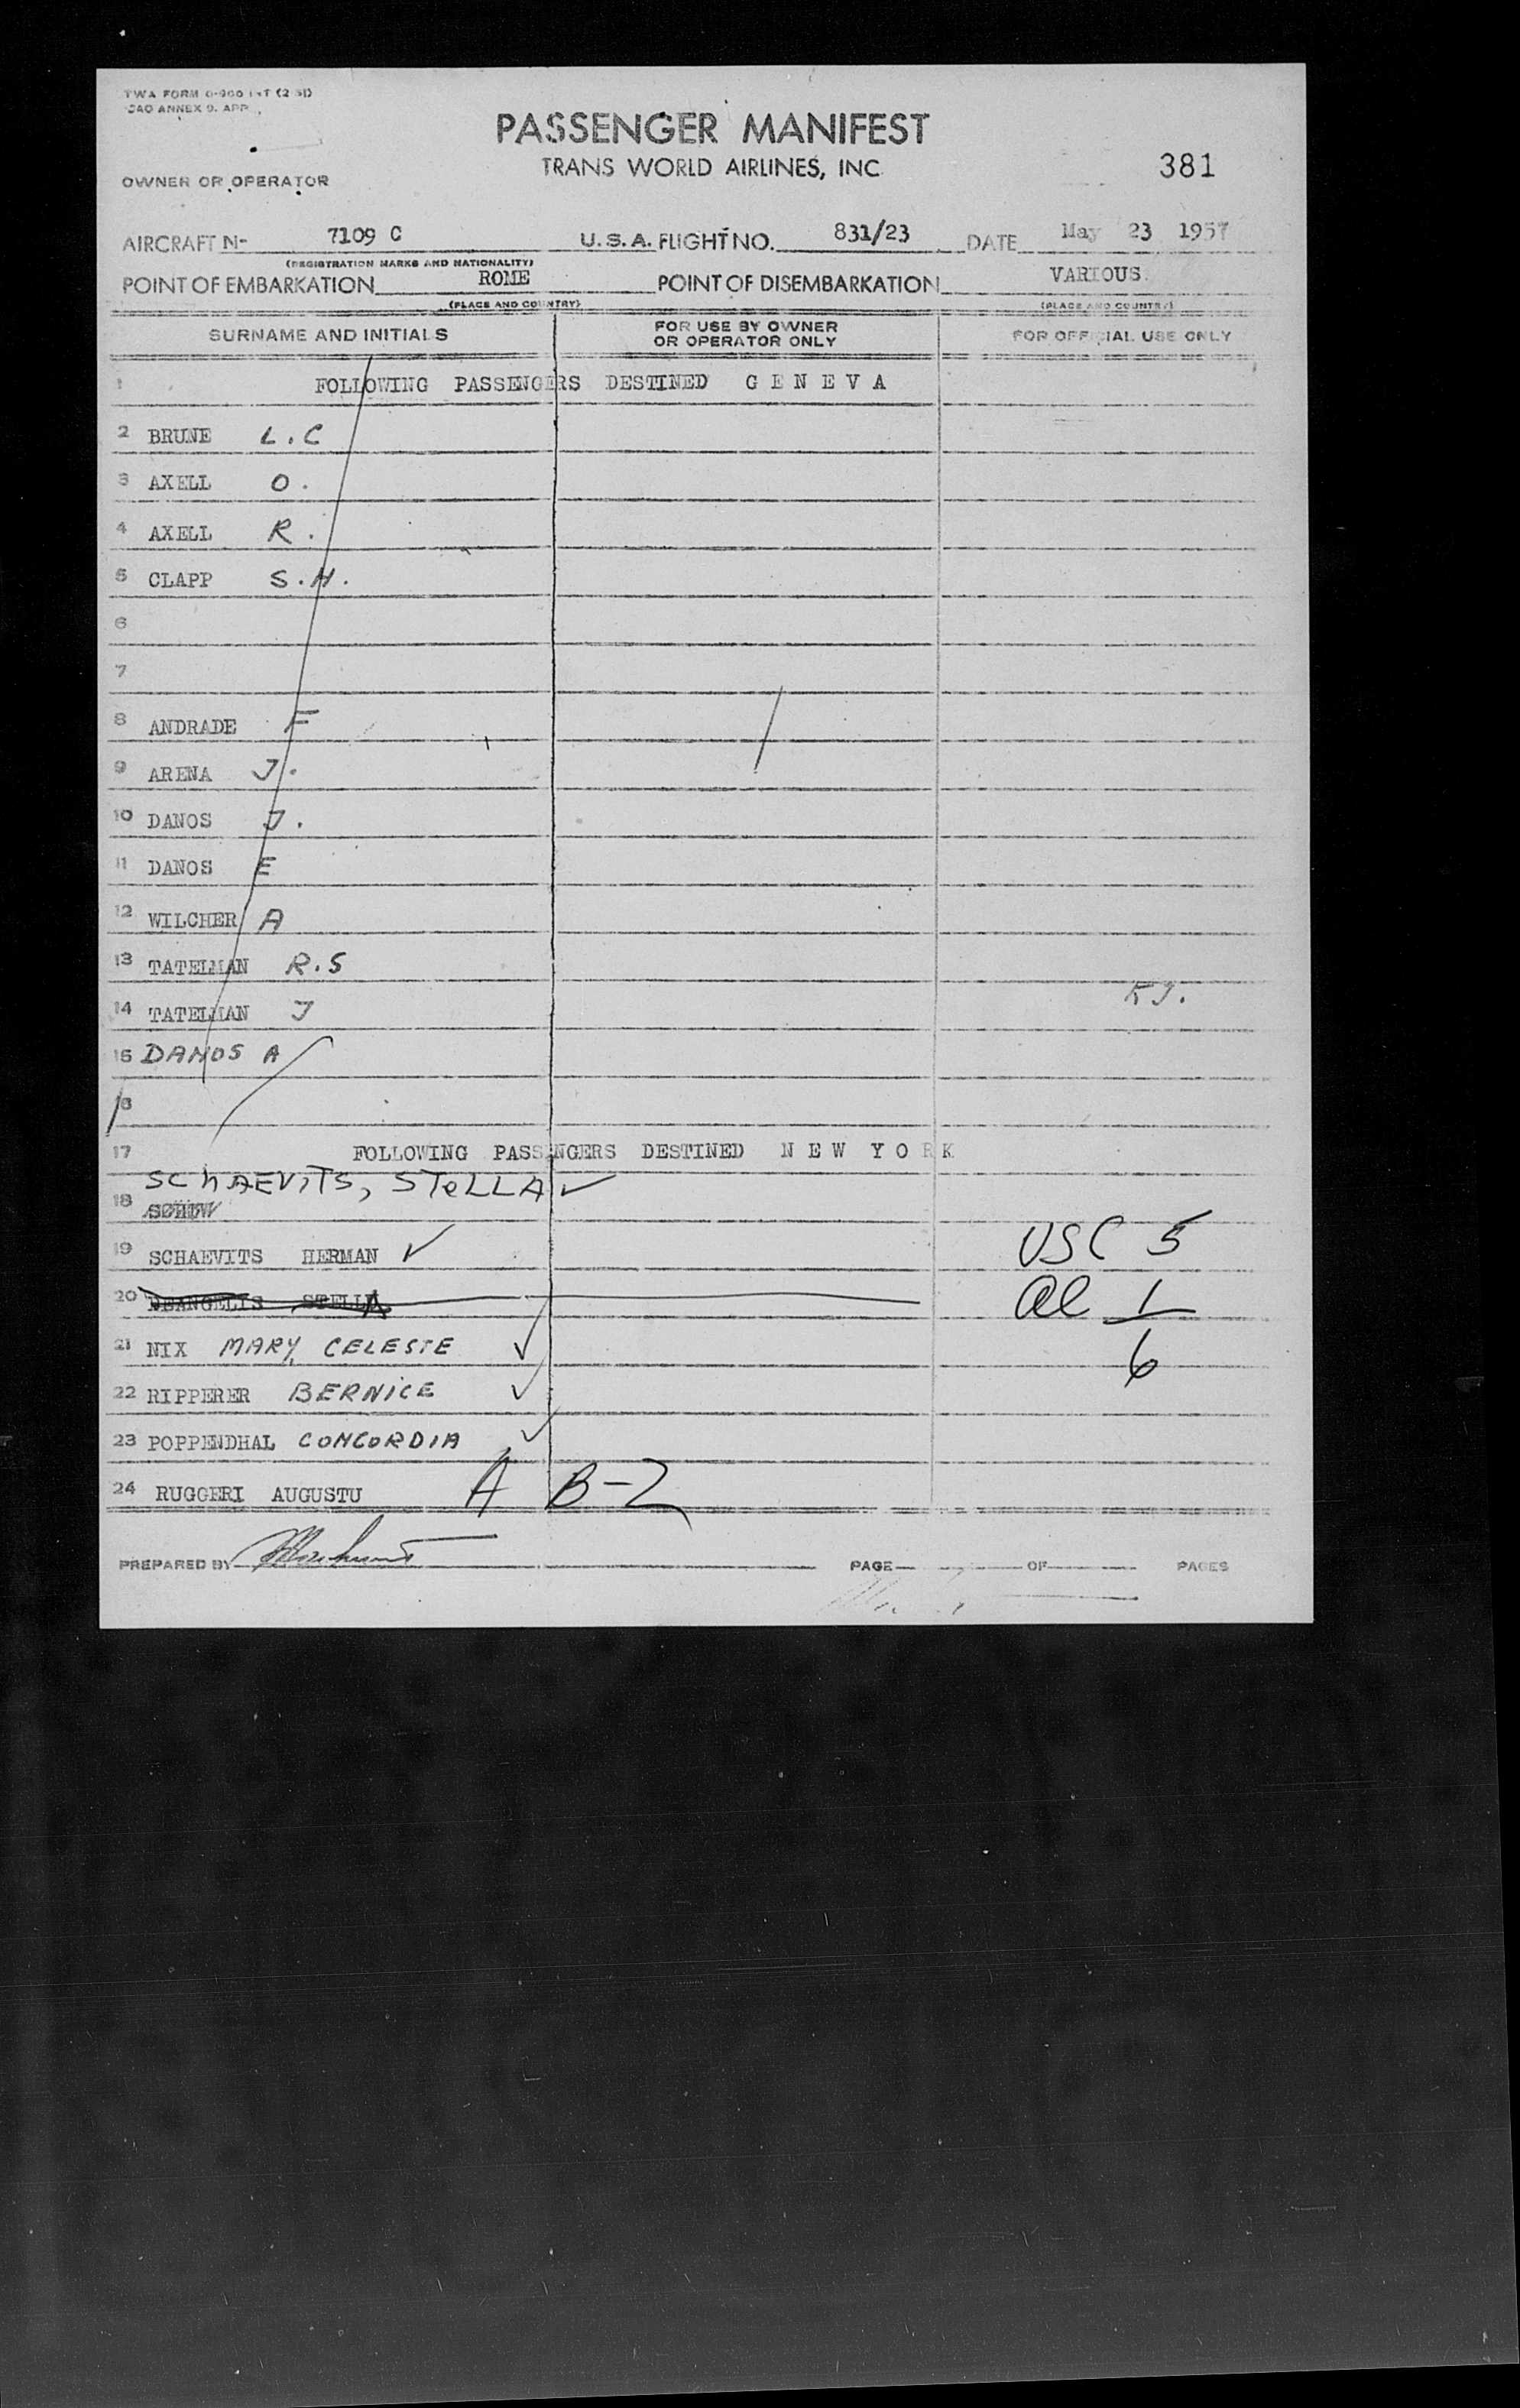 TWA FORM
ICAO ANNEX 9. APP
PASSENGER MANIFEST
TRANS WORLD AIRLINES, INC
381
OWNER OR OPERATOR
AIRCRAFT N- 7109 C U.S.A. FLIGHT NO. 831/23 DATE May 23 1957
(REGISTRATION MARKS AND NATIONALITY)
POINT OF EMBARKATION ROME POINT OF DISEMBARKATION VARIOUS
(PLACE AND COUNTRY) (PLACE AND COUNTRY)
SURNAME AND INITIALS FOR USE BY OWNER OR OPERATOR ONLY FOR OFFICIAL USE ONLY
1 FOLLOWING PASSENGERS DESTINED G E N E V A
2 BRUNE L.C
3 AXELL O.
4 AXELL R.
5 CLAPP S.H.
6
7
8 ANDRADE F
9 ARENA J.
10 DANOS J.
11 DANOS E
12 WILCHER A
13 TATELMAN R.S
14 TATELMAN J
15 DANOS A
16
17 FOLLOWING PASSENGERS DESTINED N E W Y O R K
SCHAEVITS, STELLA ✓
18
19 SCHAEVITS HERMAN ✓ USC 5
20 DEANGELIS STELLA al 1
21 NIX MARY CELESTE ✓ 6
22 RIPPERER BERNICE ✓
23 POPPENDHAL CONCORDIA ✓
24 RUGGERI AUGUSTU A B-2
PREPARED BY PAGE OF PAGES